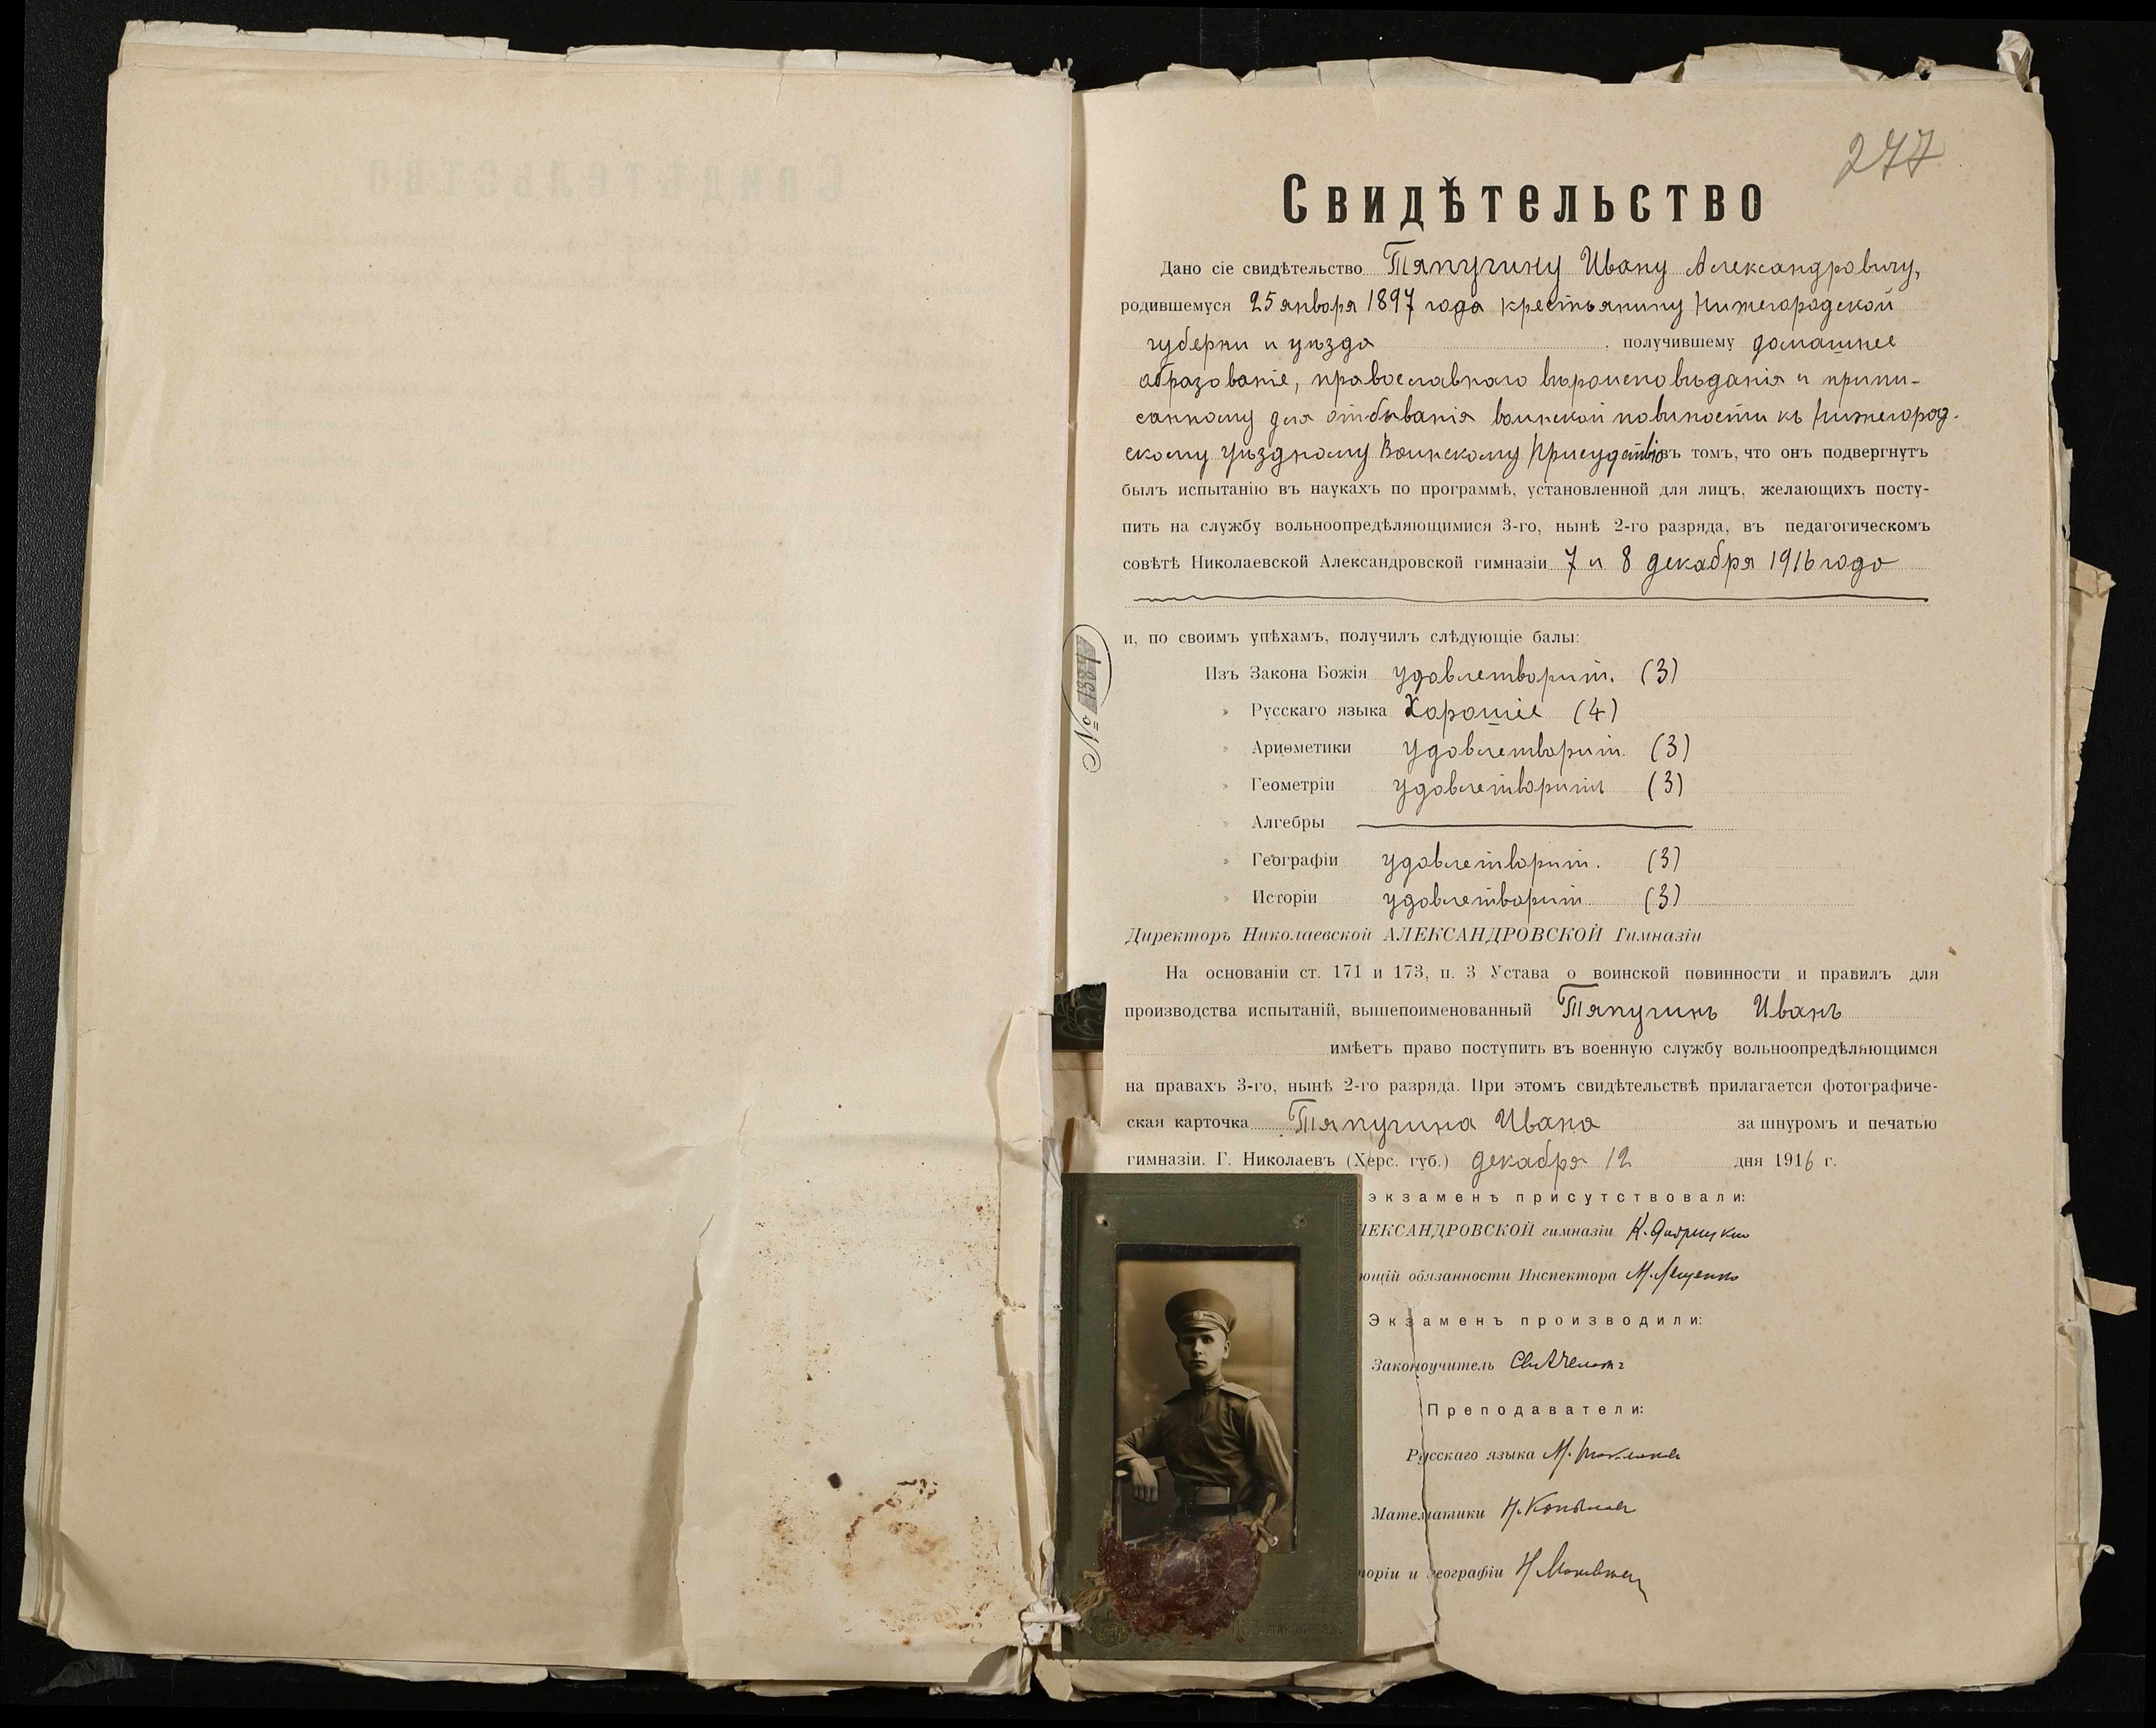 277
Свидѣтельство
Дано сіе свидѣтельство Тяпугину Ивану Александровичу,
родившемуся 25 января 1897 года крестьянину Нижегородской
губерни и уѣзда получившему домашнее
образованіе, православнаго вѣроисповѣданія и припи-
санному для отбыванія воинской повиности къ Нижегород-
скому уѣздному Воинскому Присудствію въ томъ, что онъ подвергнутъ
былъ испытанію въ наукахъ по программѣ, установленной для лицъ, желающихъ посту-
пить на службу вольноопредѣляющимися 3-го, нынѣ 2-го разряда, въ педагогическомъ
совѣтѣ Николаевской Александровской гимназіи 7 и 8 декабря 1916 года
и, по своимъ упѣхамъ, получилъ слѣдующіе балы:
Изъ Закона Божія удовлетворит. (3)
» Русскаго языка Хорошіе (4)
» Ариѳметики удовлетворит. (3)
» Геометріи удовлетворит (3)
» Алгебры
» Географіи удовлетворит. (3)
» Исторіи удовлетворит. (3)
№ 1384
Директоръ Николаевской АЛЕКСАНДРОВСКОЙ Гимназіи
На основаніи ст. 171 и 173, п. 3 Устава о воинской повинности и правилъ для
производства испытаній, вышепоименованный Тяпугинъ Иванъ
имѣетъ право поступить въ военную службу вольноопредѣляющимся
на правахъ 3-го, нынѣ 2-го разряда. При этомъ свидѣтельствѣ прилагается фотографиче-
ская карточка Тяпугина Ивана за шнуромъ и печатью
гимназіи. Г. Николаевъ (Херс. губ.) декабря 12 дня 1916 г.
экзаменъ присутствовали:
ЛЕКСАНДРОВСКОЙ гимназіи К.
ющій обязанности Инспектора М. Лещенко
Экзаменъ производили:
Законоучитель
Преподаватели:
Русскаго языка М.
Математики Н.
торіи и географіи Н